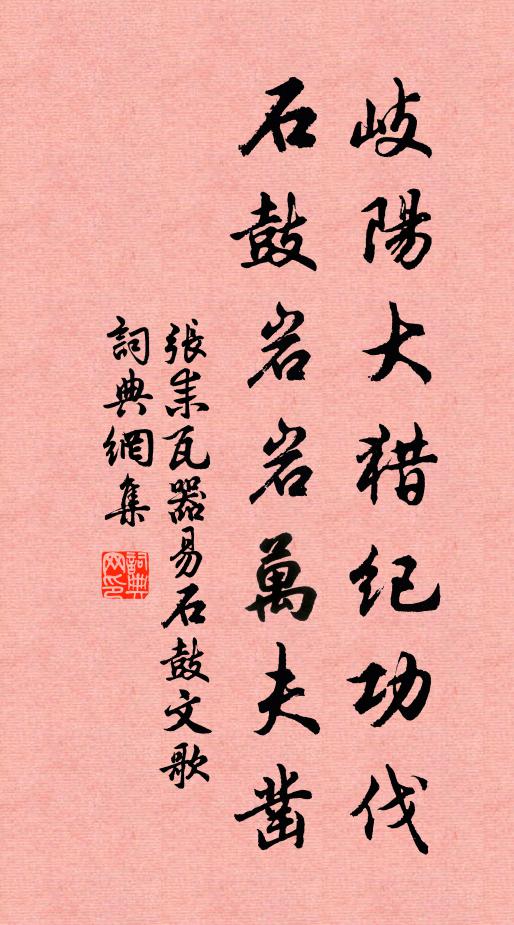 岐陽大猎纪功伐
石鼓岩岩萬夫凿
張耒瓦器易石鼓文歌
詞典網集
詞典
网印